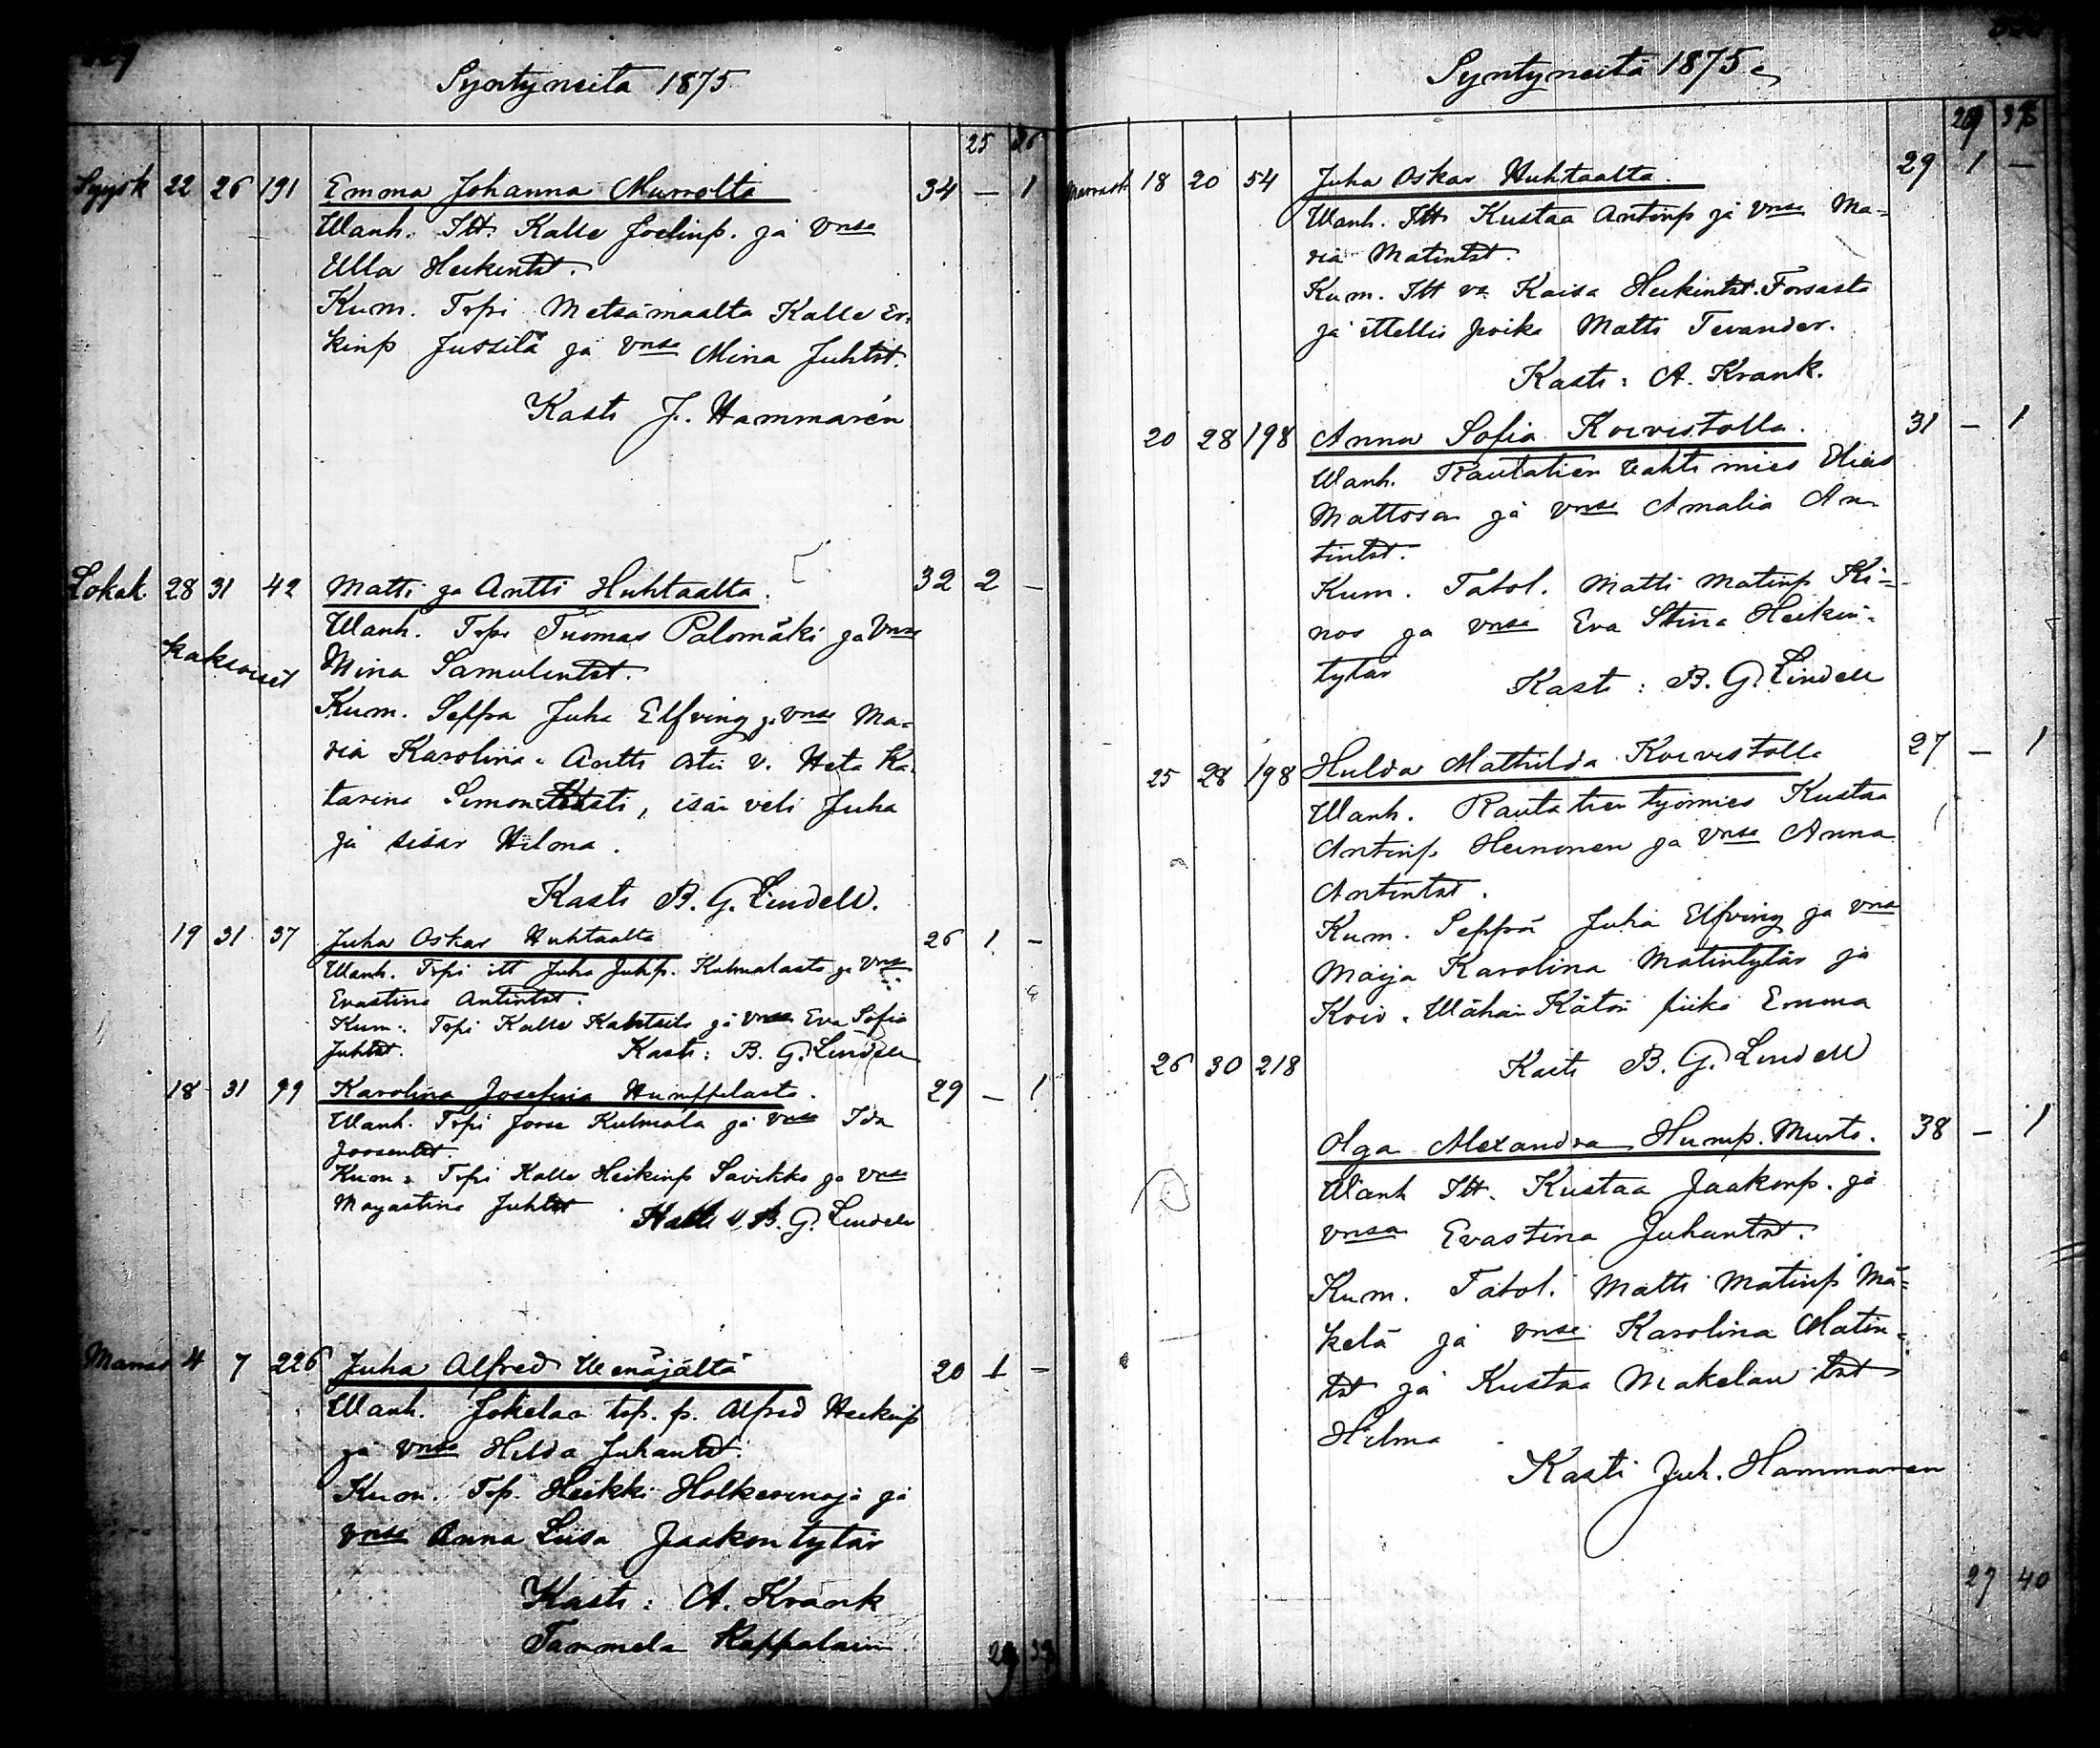 Syntyneitä 1875
25 26
Syysk 22 26 191 Emma Johanna Murrolta 34 — 1
Wanh. Itt. Kalle Joelinp. ja vnsa
Ulla Heikintst.
Kum. Trpi Metsämaalta Kalle Er-
kinp Jussila ja vnsa Mina Juhtst.
Kasti J. Hammarén
Lokak. 28 31 42 Matti ja Antti Huhtaalta. 32 2 —
kaksoiset
Wanh. Trpi Tuomas Palomäki ja vnsa
Mina Samulintst.
Kum. Seppä Juha Elfving ja vnsa Ma-
ria Karolina. Antti v. Heta Ka-
tarina Simon, isän veli Juha
ja sisar Hilma.
Kasti B. G. Lindell.
19 31 37 Juha Oskar Huhtaalta 26 1 —
Wanh. Trpi itt Juha Juhp. Kulmalasta ja vnsa
Evastina Antintst.
Kum: Trpi Kalle ja vnsa Eva Sofia
Juhtst. Kasti: B. G. Lindell
18 31 99 Karolina Josefina Humppilasta. 29 — 1
Wanh. Trpi Joose Kulmala ja vnsa Ida
Joosentst.
Kum: Trpi Kalle Heikinp Savikko ja vnsa
Majastina Juhtst B. G. Lindell
Marras 4 7 226 Juha Alfred Wenäjältä 20 1 —
Wanh. Jokelan trp. p. Alfred Heikinp
ja vnsa Hilda Juhantst.
Kum. Trp. Heikki Holkerinoja ja
vnsa Anna Liisa Jaakontytär
Kasti: A. Krank
Tammela Kappalain
29
Syntyneitä 1875
29 38
Marrask 18 20 54 Juha Oskar Huhtaalta. 29 1 —
Wanh. Itt Kustaa Antinp ja vnsa Ma-
ria Matintst.
Kum. Itt va Kaisa Heikintst. Forsasta
ja ittellis poika Matti Tevander.
Kasti: A. Krank.
20 28 198 Anna Sofia Koivistolla. 31 — 1
Wanh. Rautatien vahti mies Elias
Mattosa ja vnsa Amalia An-
tintst.
Kum. Tatol. Matti Matinp Ki-
nos ja vnsa Eva Stina Heikin-
tytär
Kasti: B. G. Lindell
25 28 198 Hulda Mathilda Koivistolla 27 — 1
Wanh. Rautatien työmies Kustaa
Antinp. Heinonen ja vnsa Anna
Antintst.
Kum. Seppä Juha Elfving ja vnsa
Maija Karolina Matintytär ja
Koiv. Wähän Kätön piika Emma
Kasti B. G. Lindell
26 30 218 Olga Alexandra Hump. Murto. 38 — 1
Wanh Itt. Kustaa Jaakonp. ja
vnsa Evastina Juhantst.
Kum. Tatol. Matti Matinp Mä-
kelä ja vnsa Karolina Matin-
tst ja Kustaa Makelan tst
Hilma
Kasti Juh. Hammaren
27 40